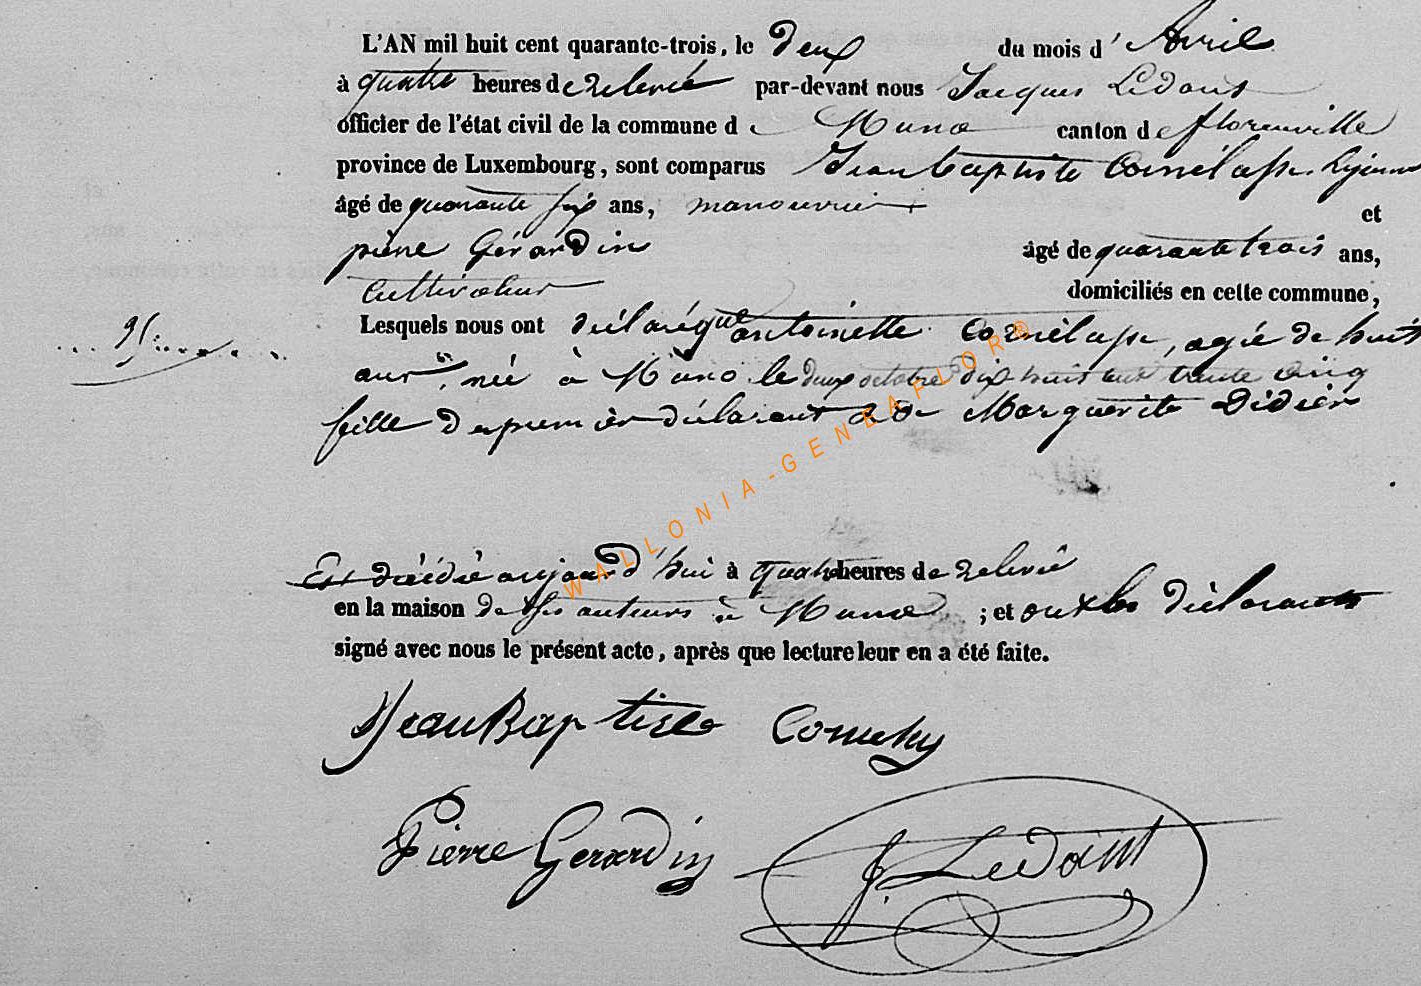 L'AN mil huit cent quarante-trois, le deux du mois d'Avril
à quatre heures de relevée par-devant nous Jacques Ledant
officier de l'état civil de la commune de Muno canton de florenville
province de Luxembourg, sont comparus Jean baptiste
âgé de quarante six ans, manouvrier et
pierre Gérardin âgé de quarante trois ans,
Cultivateur domiciliés en cette commune,
Lesquels nous ont déclaré que antoinette Cornélasse, agée de huit
ans, née à Muno le deux octobre dix huit cent trente cinq
fille du premier déclarant et de Marguerite Didier
Est décédée aujourd'hui à quatre heures de relevée
en la maison de ses auteurs à Muno ; et ont les déclarants
signé avec nous le présent acte, après que lecture leur en a été faite.
Jean Baptiste
Pierre Gerardin J. Ledant
WALLONIA-GENEAFLOR®